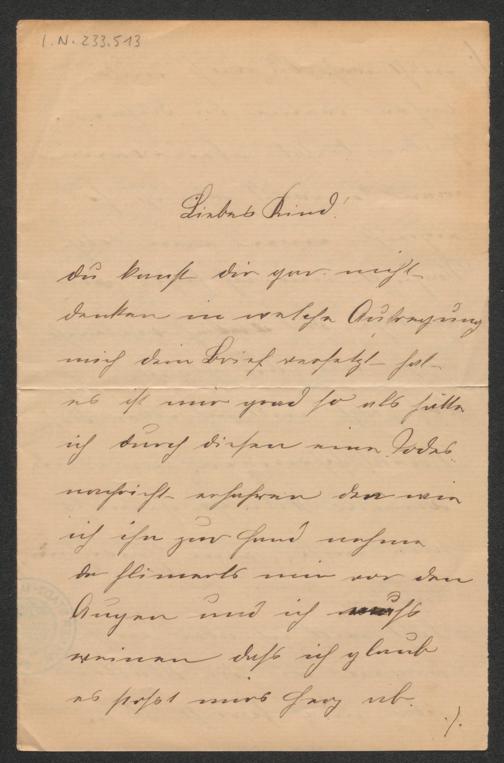 I.N. 233.513
Liebes Kind!
du kanst dir gar nicht
denken in welche Aufregung
mich dein Brief versetzt hat
es ist mir grad so als hätte
ich durch diesen eine Todes
nachricht erfahren den wie
ich ihn zur Hand nehme
da flimerts mir vor den
Augen und ich muß
weinen daß ich glaub
es stoßt mirs Herz ab.
./.